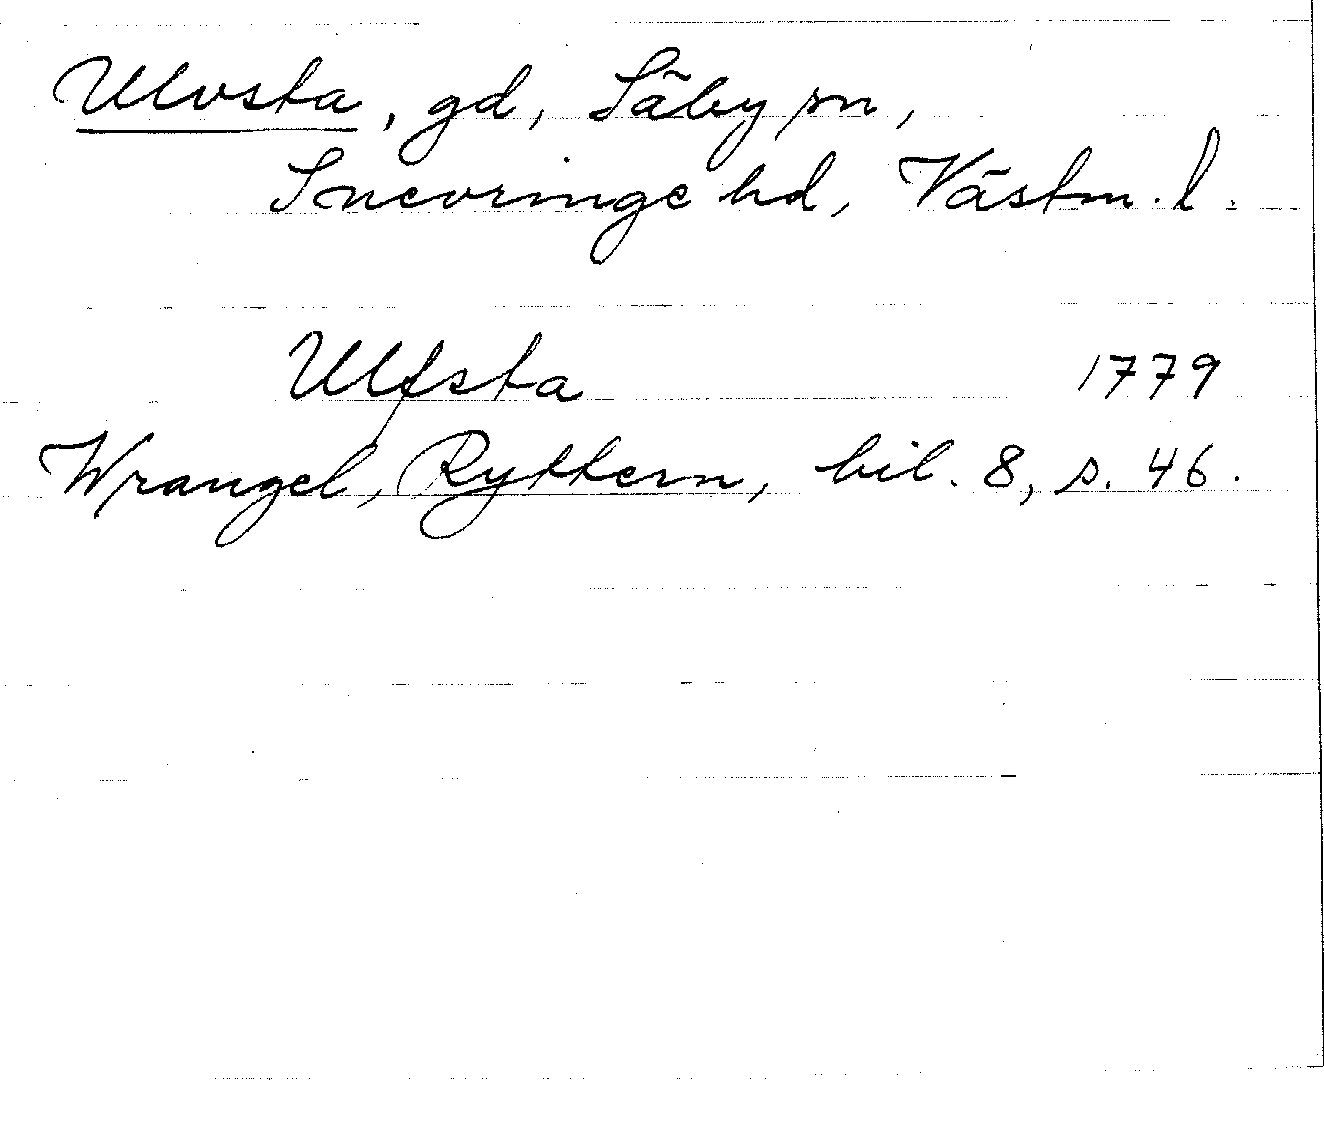 Ulvsta, gd, Säby sn,
Snevringe hd, Västm. l.
Ulfsta 1779
Wrangel, Ryttern, bil. 8, s. 46.